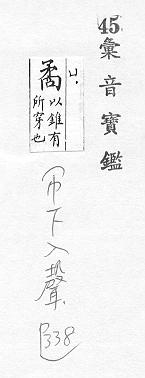 45
彙音寶鑑
ㄐ.
矞 以錐有所穿也
吊下入聲
B38